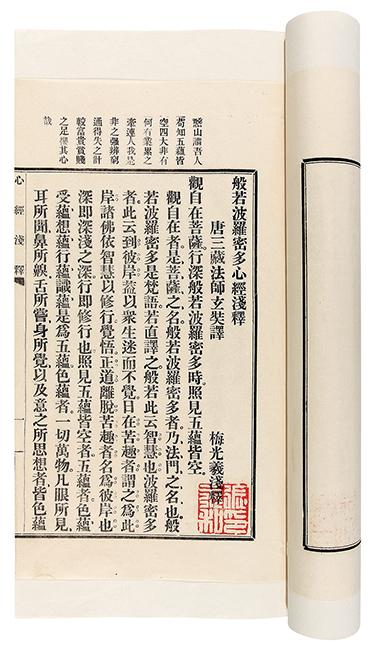 般若波羅密多心經淺釋
唐三藏法師玄奘譯
梅光羲淺釋
觀自在菩薩。行深般若波羅密多時。照見五蘊皆空。
觀自在者。是菩薩之名。般若波羅密多者。乃法門之名也。般
若波羅密多是梵語。若直譯之。般若此云智慧也。波羅密多
者。此云到彼岸。蓋以衆生迷而不覺。日在苦趣者。謂之爲此
岸。諸佛依以修行覺悟正道。離脫苦趣者。名爲彼岸也。
深卽深淺之深。行卽修行也。照見五蘊皆空者。五蘊者。色蘊
受蘊想蘊行蘊識蘊。是爲五蘊。色蘊者。一切萬物。凡眼所見。
耳所聞。鼻所齅。舌所嘗。身所覺。以及意之所思想者。皆色蘊
憨山謂吾人
苟知五蘊皆
空四大非有
何有業累之
牽連人我是
非之强辨窮
通得失之計
較富貴貧賤
之足嬰其心
哉
心經淺釋
一